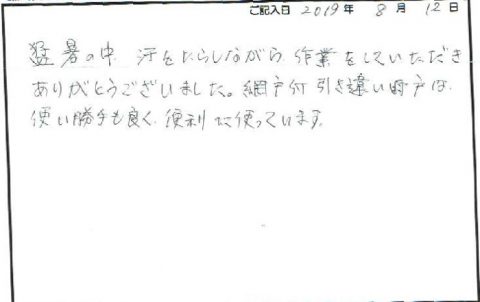 ご記入日 2019 年 8 月 12 日
猛暑の中 汗をたらしながら 作業をしていただき
ありがとうございました。網戸付引き違い雨戸は、
使い勝手も良く、便利に使っています。